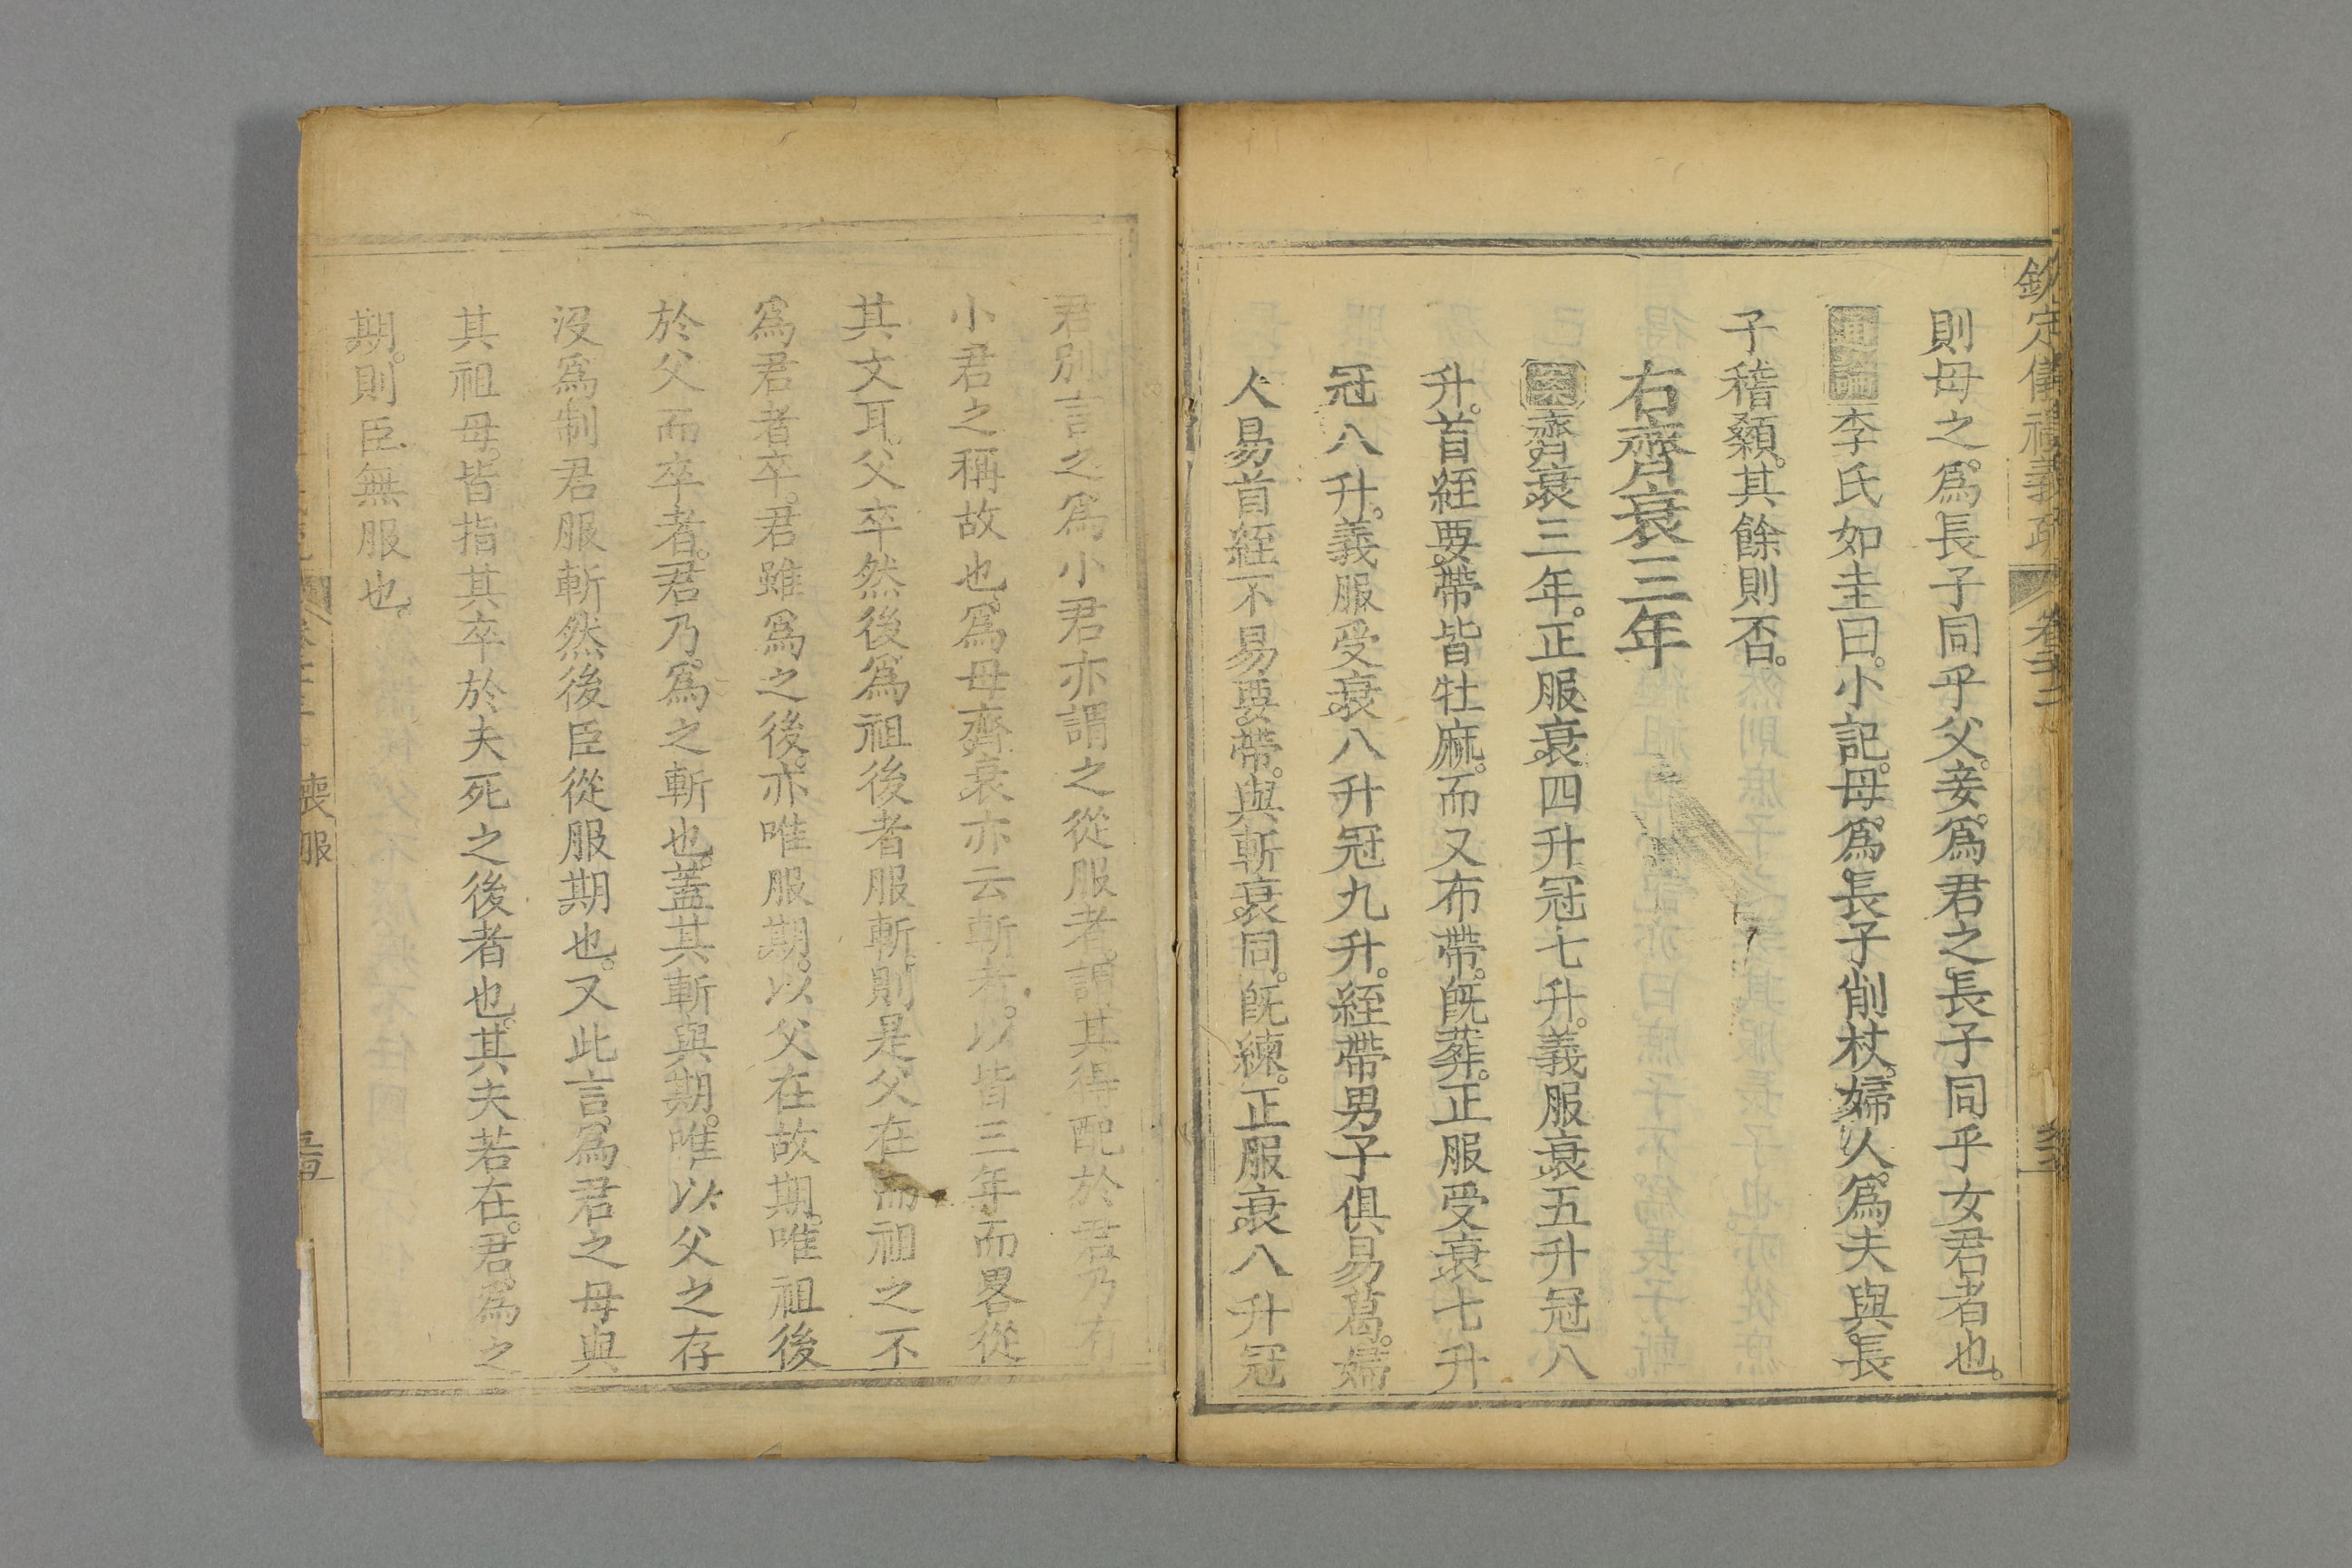 欽定儀禮義疏 卷二十二
則母之爲長子同乎父妾爲君之長子同乎女君者也
通論李氏如圭曰小記母爲長子削杖婦人爲夫與長
子稽顙其餘則否
右齊衰三年
案齊衰三年正服衰四升冠七升義服衰五升冠八
升首絰要帶皆牡麻而又布帶旣葬正服受衰七升
冠八升義服受衰八升冠九升絰帶男子俱易葛婦
人易首絰不易要帶與斬衰同旣練正服衰八升冠
君別言之爲小君亦謂之從服者謂其得配於君乃有
小君之稱故也爲母齊衰亦云斬者以皆三年而畧從
其文耳父卒然後爲祖後者服斬則是父在而祖之不
爲君者卒君雖爲之後亦唯服期以父在故期唯祖後
於父而卒者君乃爲之斬也蓋其斬與期唯以父之存
沒爲制君服斬然後臣從服期也又此言爲君之母與
其祖母皆指其卒於夫死之後者也其夫若在君爲之
期則臣無服也
喪服